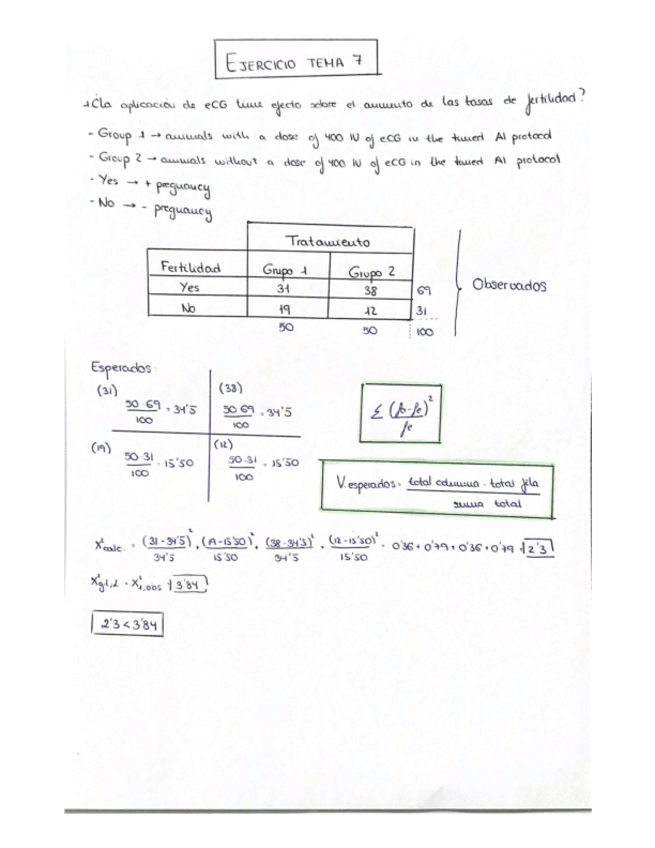 EJERCICIO TEMA 7
¿La aplicación de eCG tiene efecto sobre el aumento de las tasas de fertilidad?
- Group 1 → animals with a dose of 400 IU of eCG in the timed AI protocol
- Group 2 → animals without a dose of 400 IU of eCG in the timed AI protocol
- Yes → + pregnancy
- No → - pregnancy
Tratamiento
Fertilidad Grupo 1 Grupo 2
Yes 31 38 69
No 19 12 31
50 50 100
Observados
Esperados:
(31) 50·69/100 = 34'5
(38) 50·69/100 = 34'5
(19) 50·31/100 = 15'50
(12) 50·31/100 = 15'50
Σ (fo-fe)²/fe
V. esperados = total columna · total fila / suma total
X²calc. = (31-34'5)²/34'5 + (19-15'50)²/15'50 + (38-34'5)²/34'5 + (12-15'50)²/15'50 = 0'36 + 0'79 + 0'36 + 0'79 = 2'3
X²gl,α = X²1,0.05 = 3'84
2'3 < 3'84